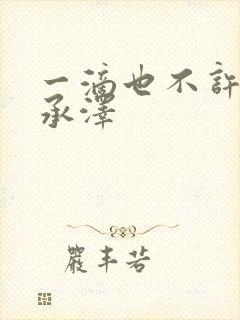 一滴也不許
承澤
嚴丰若